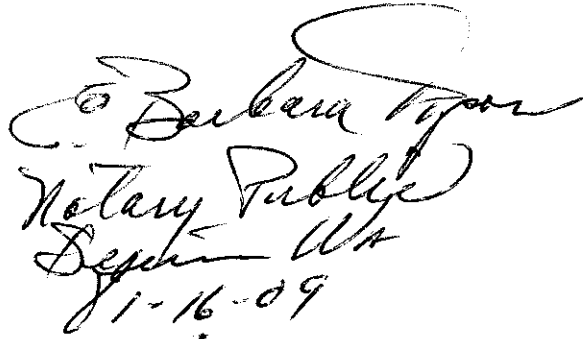 E. Barbara Tipon
Notary Public
Sequim WA
1-16-09